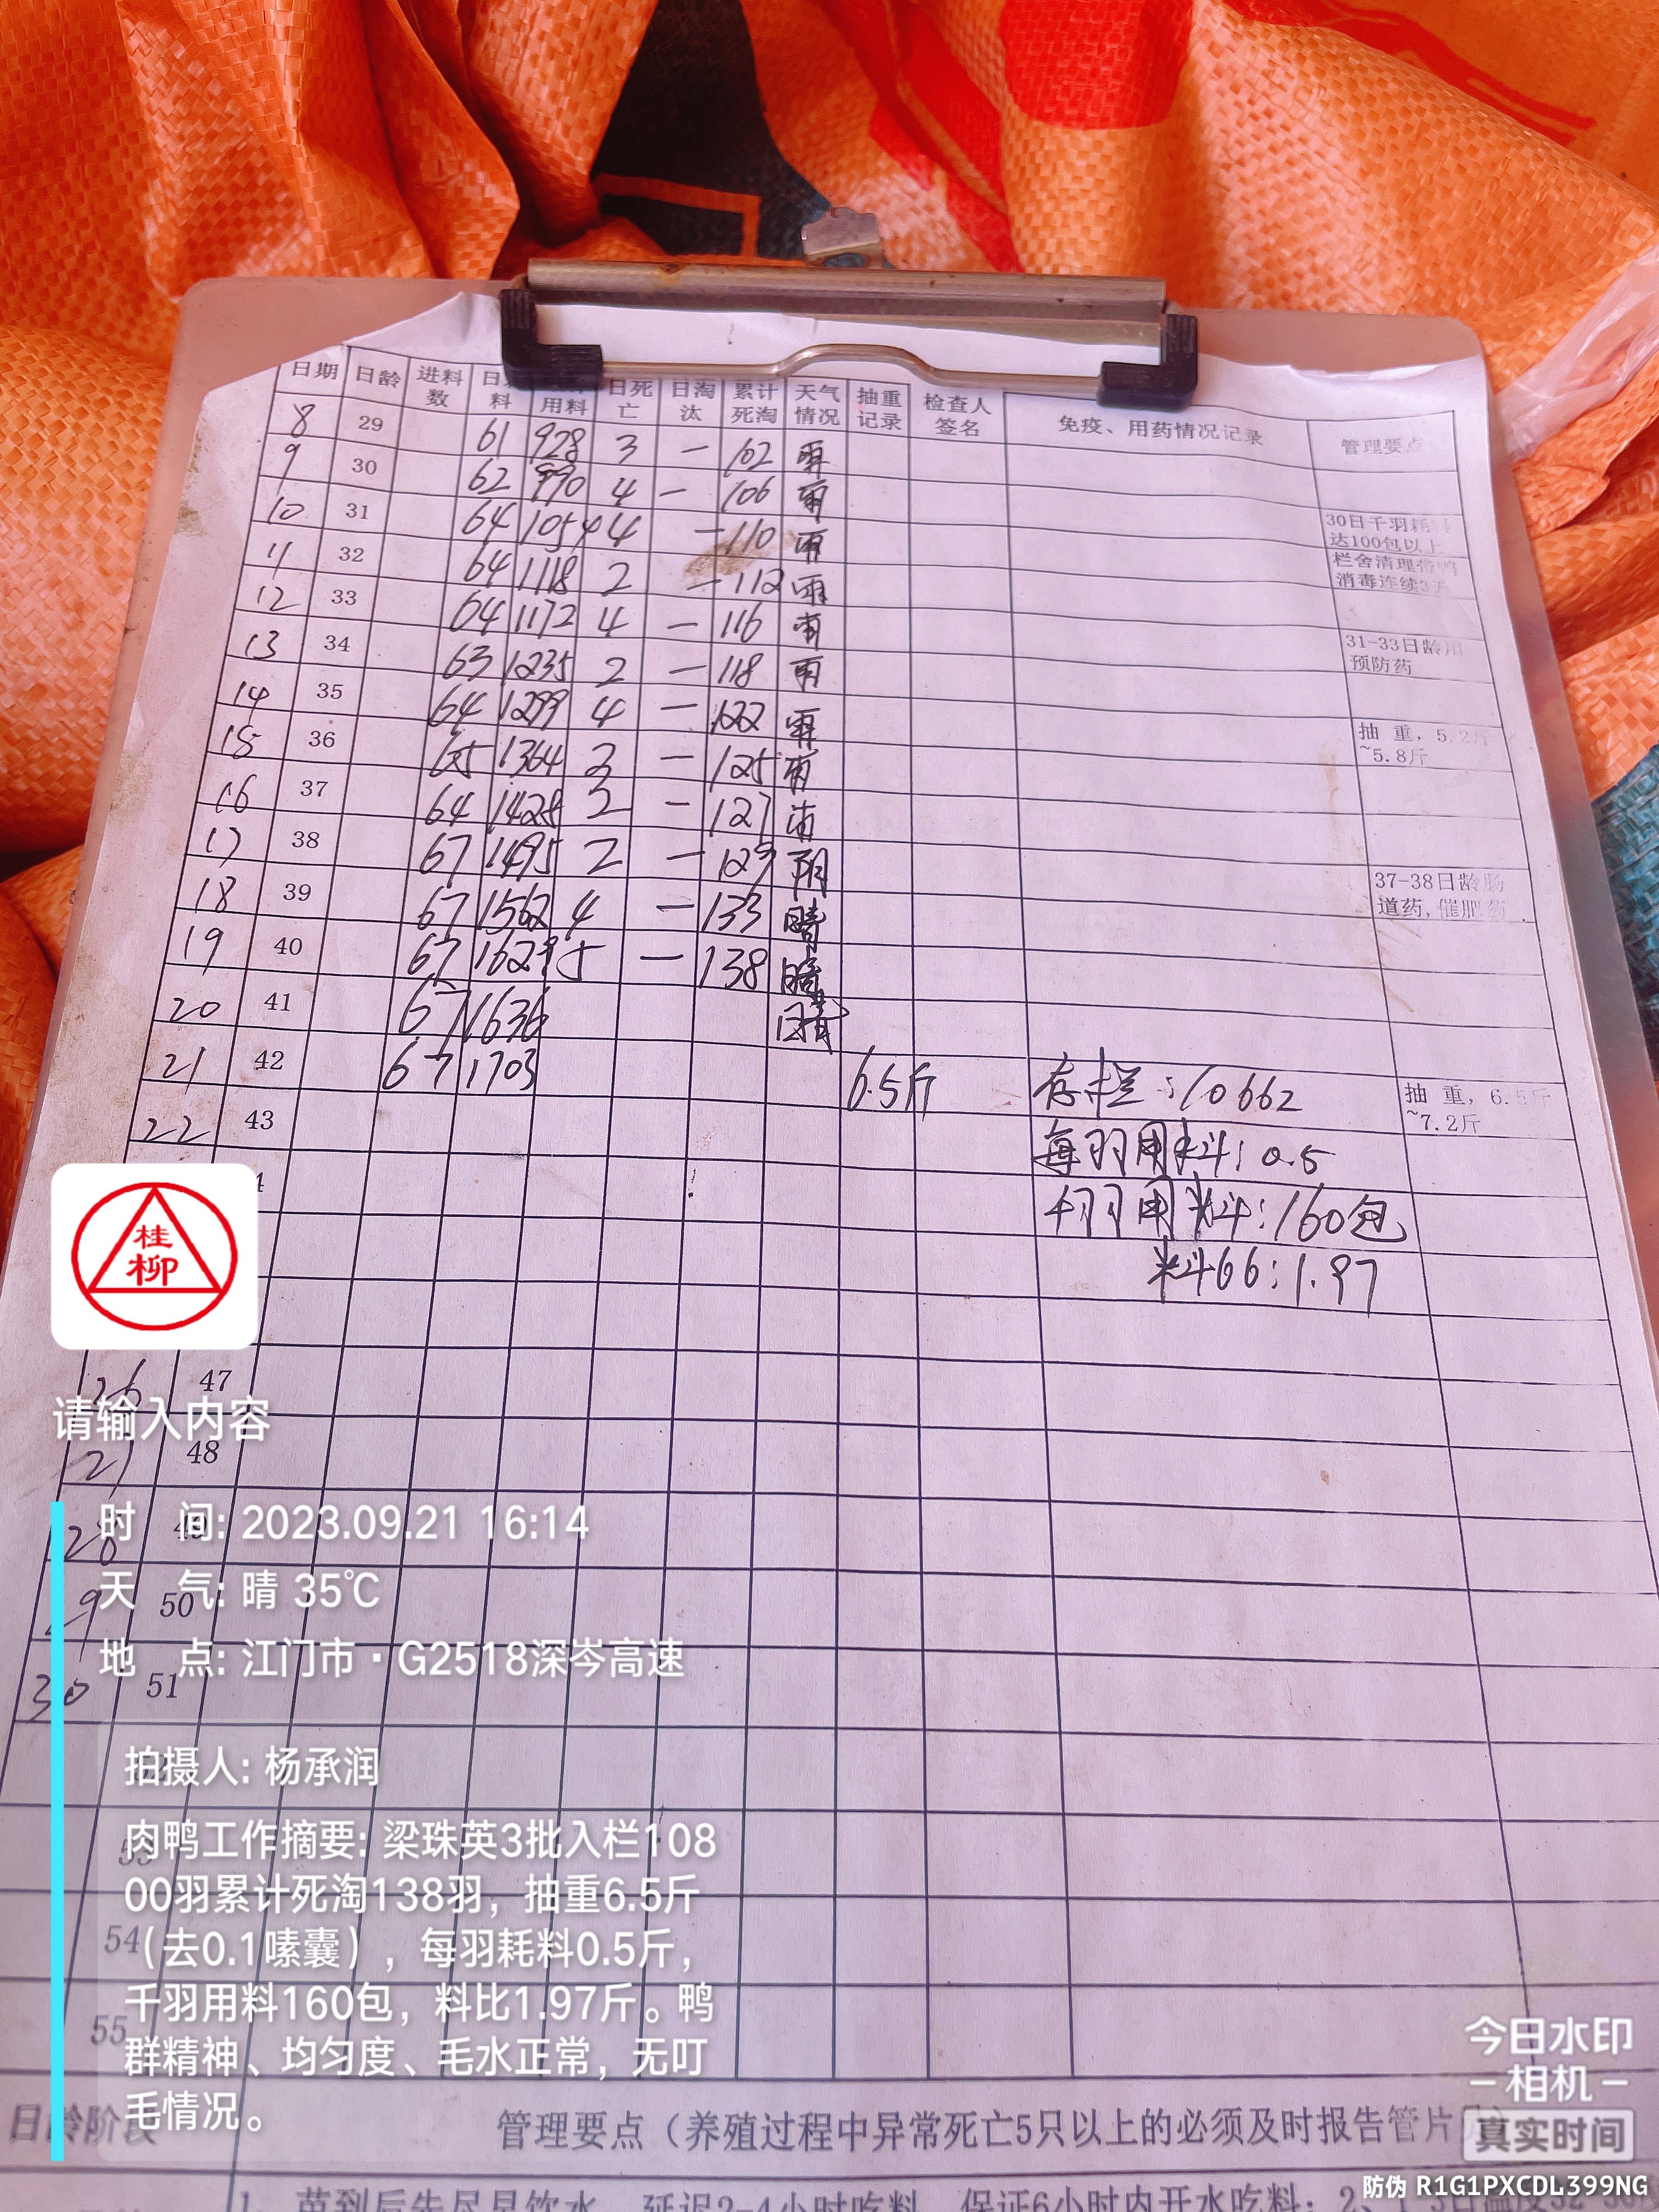 日期 日龄 进料数 日 料 用料 日死亡 日淘汰 累计死淘 天气情况 抽重记录 检查人签名 免疫、用药情况记录 管理要点
8 29 61 928 3 — 102 雨
9 30 62 990 4 — 106 雨
10 31 64 1054 4 — 110 雨 30日千羽耗料达100包以上
11 32 64 1118 2 — 112 雨 栏舍清理带鸭消毒连续3天
12 33 64 1172 4 — 116 雨
13 34 63 1235 2 — 118 雨 31-33日龄用预防药
14 35 64 1299 4 — 122 雨
15 36 65 1364 3 — 125 雨 抽 重,5.2斤~5.8斤
16 37 64 1428 2 — 127
17 38 67 1495 2 — 129 阴
18 39 67 1562 4 — 133 晴 37-38日龄肠道药,催肥药
19 40 67 1629 5 — 138 晴
20 41 67 1636 晴
21 42 67 1703 6.5斤 存栏:10662 抽 重,6.5斤~7.2斤
22 43 每羽用料:0.5
4 千羽用料:160包
料66:1.97
桂
柳
26 47
请输入内容
27 48
28 49
时 间: 2023.09.21 16:14
29 50
天 气: 晴 35℃
地 点: 江门市·G2518深岑高速
30 51
拍摄人: 杨承润
53
肉鸭工作摘要: 梁珠英3批入栏108
00羽累计死淘138羽，抽重6.5斤
54
（去0.1嗉囊），每羽耗料0.5斤，
千羽用料160包，料比1.97斤。鸭
55
群精神、均匀度、毛水正常，无叮
毛情况。
今日水印
-相机-
真实时间
日龄阶段 管理要点（养殖过程中异常死亡5只以上的必须及时报告管片员）
防伪 R1G1PXCDL399NG
1、苗到后先尽早饮水，延迟2-4小时吃料，保证6小时内开水吃料；2、